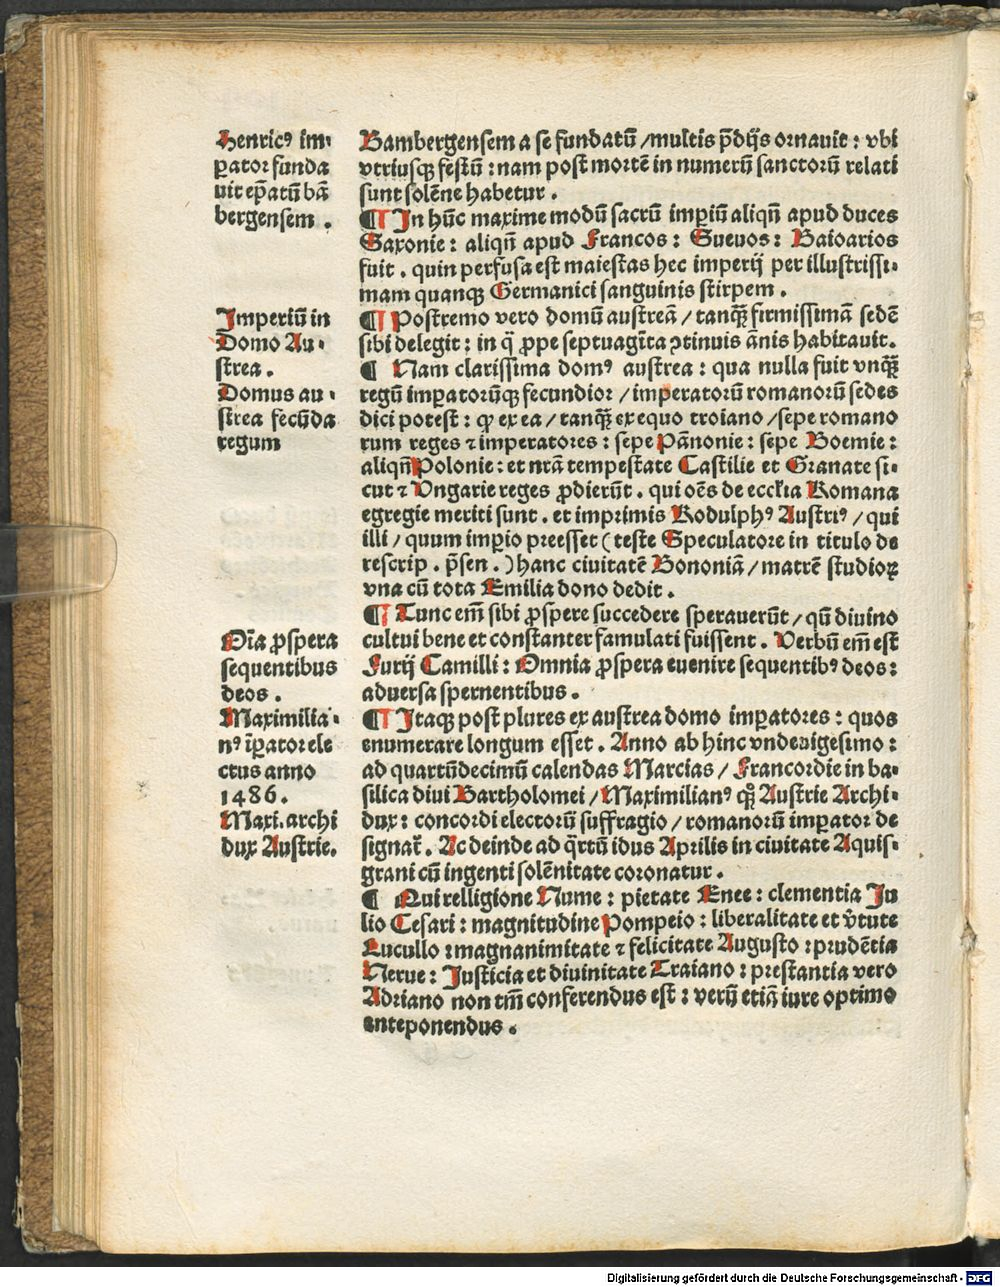 Henricꝰ im-
ꝑator funda
uit ep̄atū bā
bergensem .
Imperiū in
Domo Au-
strea .
Domus au-
strea fecūda
regum
Oīa ꝓspera
sequentibus
deos .
Maximilia-
nꝰ īꝑator ele
ctus anno
1486.
Maxi. archi
dux Austrie.
Bambergensem a se fundatū /multis p̄dijs ornauit : vbi
vtriusqꝫ festū : nam post mortē in numerū sanctorū relati
sunt solēne habetur .
¶ In hūc maxime modū sacrū imꝑiū aliqn̄ apud duces
Saxonie : aliqn̄ apud Francos : Sueuos : Baioarios
fuit . quin perfusa est maiestas hec imperij per illustrissi-
mam quanqꝫ Germanici sanguinis stirpem .
¶ Postremo vero domū austreā / tanqꝫ̄ firmissimā sedē
sibi delegit : in q̄ ꝓpe septuagīta ↄtinuis ānis habitauit.
¶ Nam clarissima domꝰ austrea : qua nulla fuit vnqꝫ̄
regū imꝑatorūqꝫ fecundior / imperatorū romanorū sedes
dici potest : qꝛ ex ea / tanqꝫ̄ ex equo troiano /sepe romano
rum reges ⁊ imperatores : sepe Pānonie : sepe Boemie :
aliqn̄ Polonie : et nr̄a tempestate Castilie et Granate si-
cut ⁊ Ungarie reges ꝓdierūt . qui oēs de eccl̄ia Romana
egregie meriti sunt . et imprimis Rodulphꝰ Austriꝰ / qui
illi / quum imꝑio preesset ( teste Speculatore in titulo de
rescrip . p̄sen . ) hanc ciuitatē Bononiā / matrē studioꝝ
vna cū tota Emilia dono dedit .
¶ Tunc em̄ sibi ꝓspere succedere sperauerūt / qū diuino
cultui bene et constanter famulati fuissent . Verbū em̄ est
Furij Camilli : Omnia ꝓspera euenire sequentibꝰ deos :
aduersa spernentibus .
¶ Itaqꝫ post plures ex austrea domo imꝑatores : quos
enumerare longum esset . Anno ab hinc vndeuigesimo :
ad quartūdecimū calendas Marcias / Francordie in ba-
silica diui Bartholomei / Maximilianꝰ qꝫ̊ Austrie Archi-
dux : concordi electorū suffragio / romanorū imꝑator de
signat᷑. Ac deinde ad q̄rtū idus Aprilis in ciuitate Aquis-
grani cū ingenti solēnitate coronatur .
¶ Qui relligione Nume : pietate Enee : clementia Ju
lio Cesari : magnitudine Pompeio : liberalitate et v̄tute
Lucullo : magnanimitate ⁊ felicitate Augusto : prudētia
Nerue : Justicia et diuinitate Traiano : prestantia vero
Adriano non tm̄ conferendus est : verū etiā iure optimo
anteponendus .
Digitalisierung gefördert durch die Deutsche Forschungsgemeinschaft - DFG